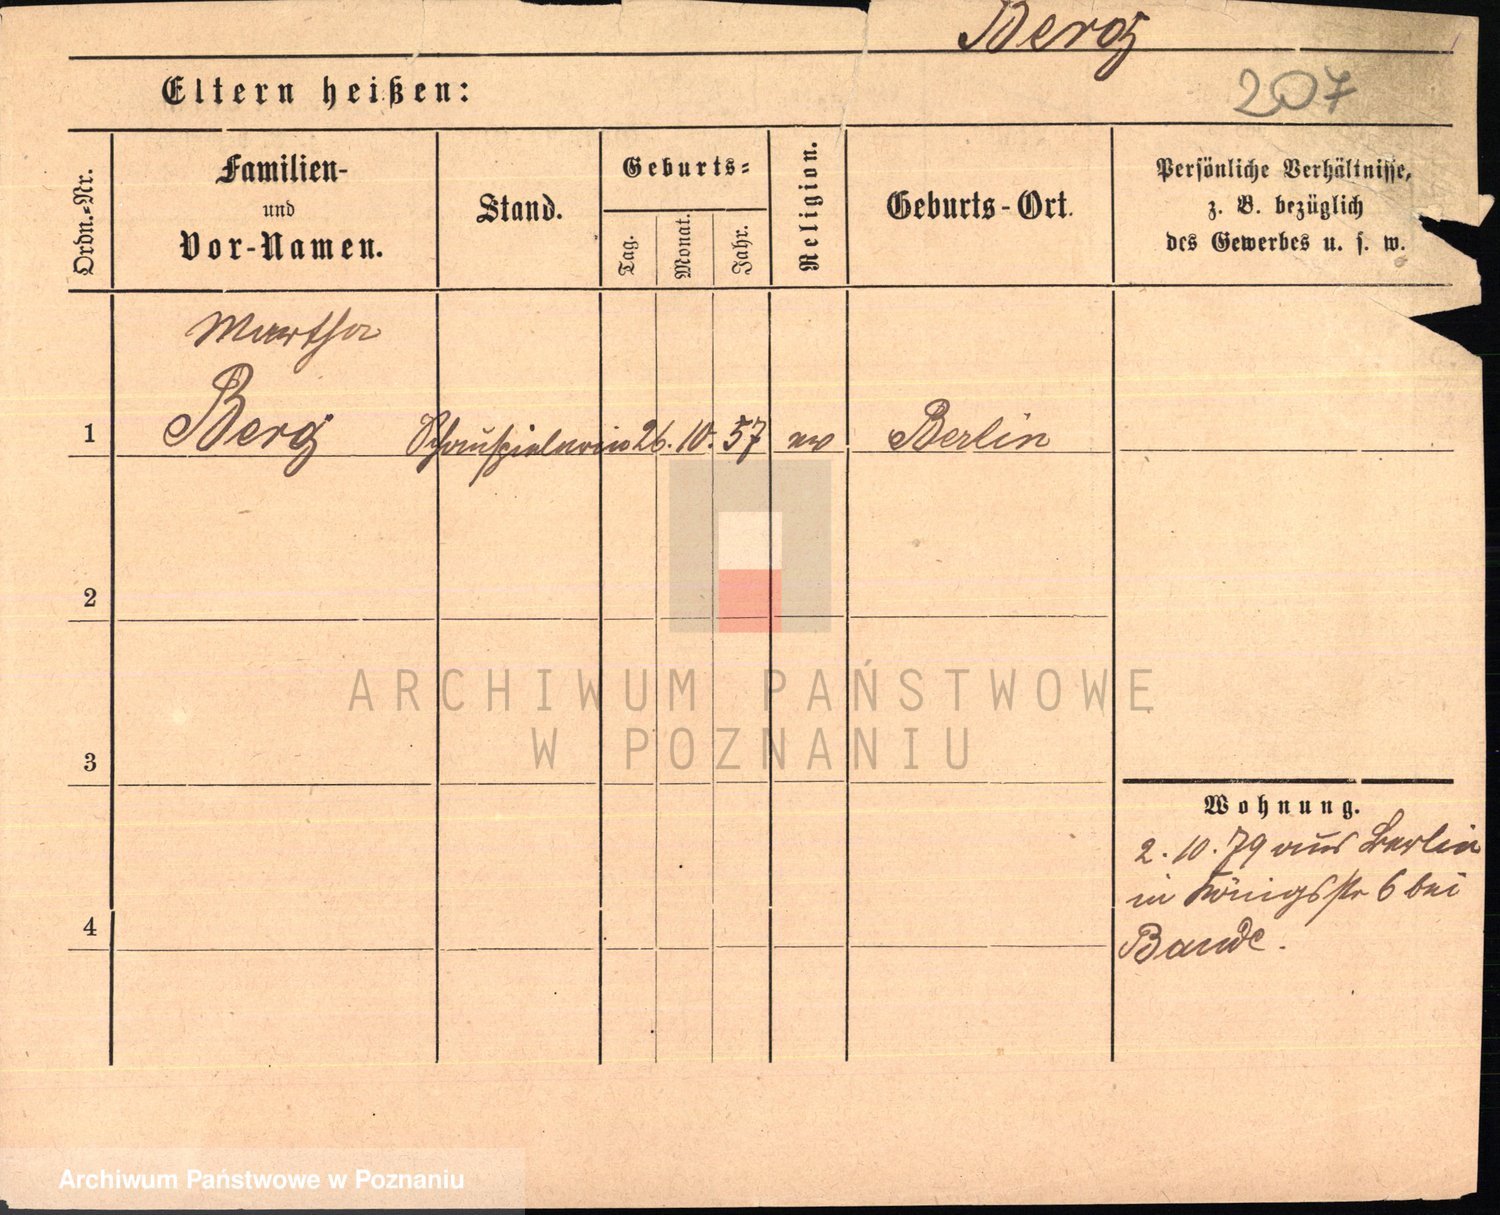 Berg
Eltern heißen:
207
Ordn.-Nr.
Familien-
und
Vor-Namen.
Stand.
Geburts-
Tag.
Monat.
Jahr.
Religion.
Geburts-Ort.
Persönliche Verhältnisse,
z. B. bezüglich
des Gewerbes u. s. w.
Martha
1 Berg Schauspielerin 26. 10. 57 ev Berlin
2
ARCHIWUM PAŃSTWOWE
W POZNANIU
3
Wohnung.
2. 10. 79 aus Berlin
in Königsstr 6 bei
4
Bande.
Archiwum Państwowe w Poznaniu